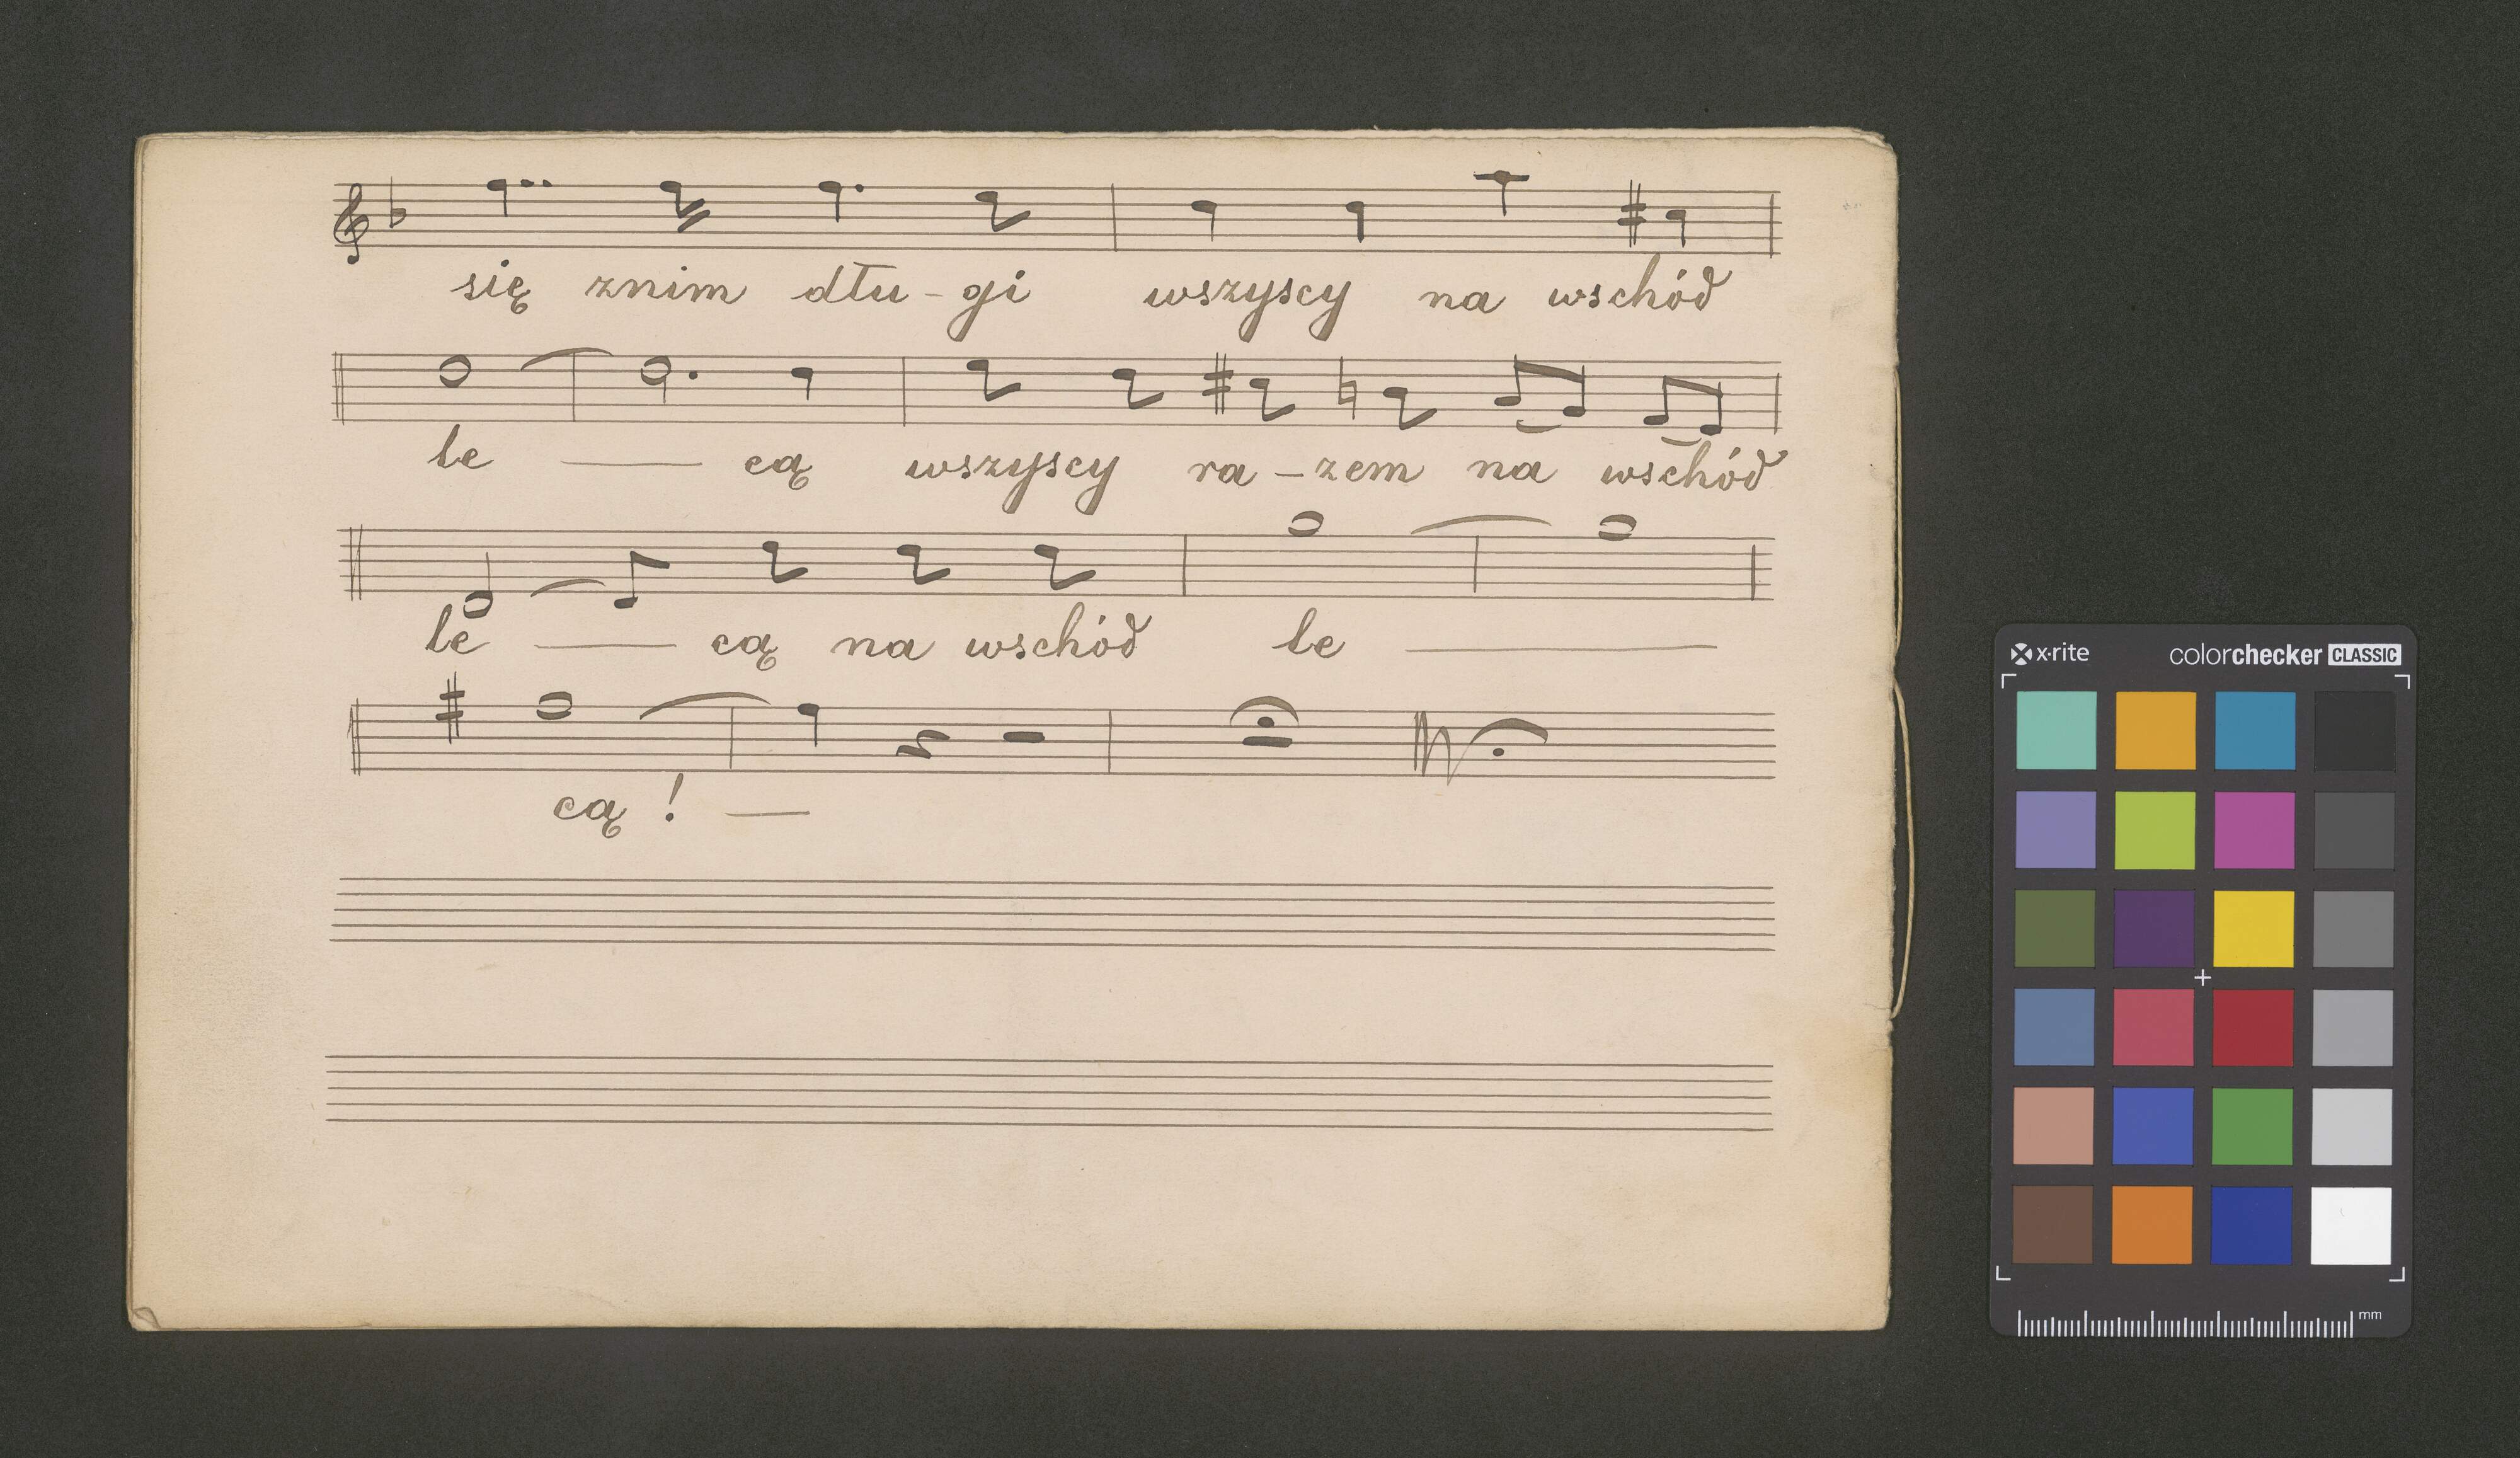 się znim dłu-gi wszyscy na wschód
le — cą wszyscy ra-zem na wschód
le — cą na wschód le —
cą! —
x·rite colorchecker CLASSIC
mm